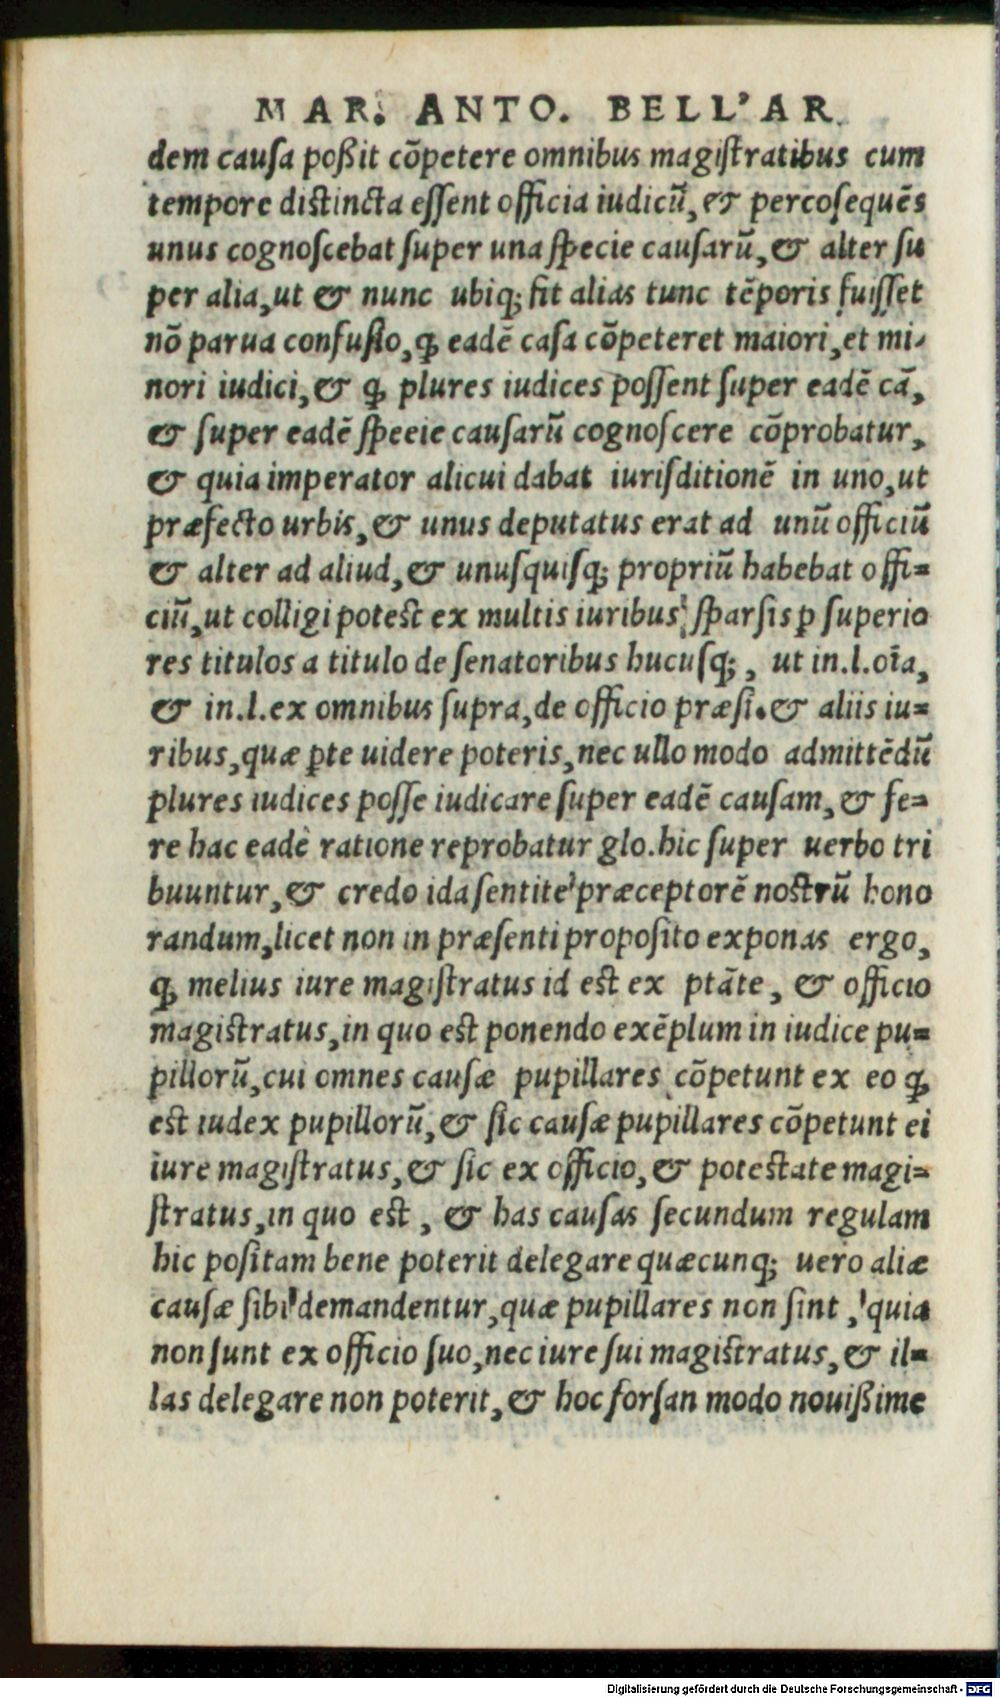 MAR. ANTO. BELL'AR.
dem causa poßit cōpetere omnibus magistratibus cum
tempore distincta essent officia iudicū, & percosequēs
unus cognoscebat super una specie causarū, & alter su
per alia, ut & nunc ubiq; fit alias tunc tēporis fuisset
nō parua confusio, ꝙ eadē casa cōpeteret maiori, et mi-
nori iudici, & ꝙ plures iudices possent super eadē cā,
& super eadē speeie causarū cognoscere cōprobatur,
& quia imperator alicui dabat iurisditionē in uno, ut
præfecto urbis, & unus deputatus erat ad unū officiū
& alter ad aliud, & unusquisq; propriū habebat offi=
ciū, ut colligi potest ex multis iuribus sparsis ꝑ superio
res titulos a titulo de senatoribus hucusq;, ut in.l.oīa,
& in.l.ex omnibus supra, de officio præsi. & aliis iu=
ribus, quæ ꝑte uidere poteris, nec ullo modo admittēdū
plures iudices posse iudicare super eadē causam, & fe=
re hac eadē ratione reprobatur glo. hic super uerbo tri
buuntur, & credo ida sentite' præceptorē nostrū hono
randum, licet non in præsenti proposito exponas ergo,
ꝙ melius iure magistratus id est ex ptāte, & officio
magistratus, in quo est ponendo exēplum in iudice pu=
pillorū, cui omnes causæ pupillares cōpetunt ex eo ꝙ
est iudex pupillorū, & sic causæ pupillares cōpetunt ei
iure magistratus, & sic ex officio, & potestate magi=
stratus, in quo est, & has causas secundum regulam
hic positam bene poterit delegare quæcunq; uero aliæ
causæ sibi' demandentur, quæ pupillares non sint, 'quia
non sunt ex officio suo, nec iure sui magistratus, & il=
las delegare non poterit, & hoc forsan modo nouißime
Digitalisierung gefördert durch die Deutsche Forschungsgemeinschaft - DFG